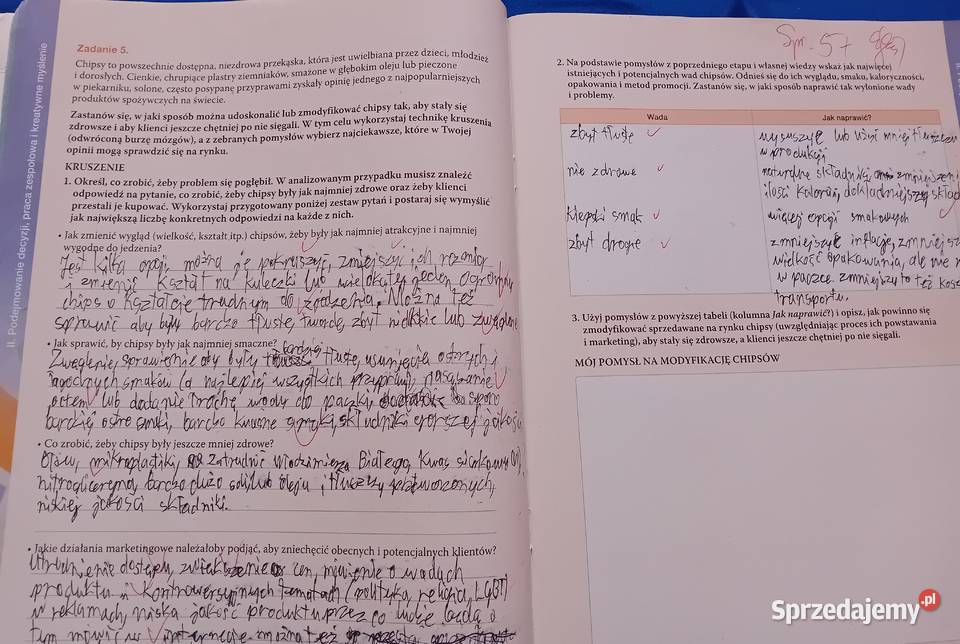 II. Podejmowanie decyzji, praca zespołowa i kreatywne myślenie
Zadanie 5.
Chipsy to powszechnie dostępna, niezdrowa przekąska, która jest uwielbiana przez dzieci, młodzież
i dorosłych. Cienkie, chrupiące plastry ziemniaków, smażone w głębokim oleju lub pieczone
w piekarniku, solone, często posypane przyprawami zyskały opinię jednego z najpopularniejszych
produktów spożywczych na świecie.
Zastanów się, w jaki sposób można udoskonalić lub zmodyfikować chipsy tak, aby stały się
zdrowsze i aby klienci jeszcze chętniej po nie sięgali. W tym celu wykorzystaj technikę kruszenia
(odwróconą burzę mózgów), a z zebranych pomysłów wybierz najciekawsze, które w Twojej
opinii mogą sprawdzić się na rynku.
KRUSZENIE
1. Określ, co zrobić, żeby problem się pogłębił. W analizowanym przypadku musisz znaleźć
odpowiedź na pytanie, co zrobić, żeby chipsy były jak najmniej zdrowe oraz żeby klienci
przestali je kupować. Wykorzystaj przygotowany poniżej zestaw pytań i postaraj się wymyślić
jak największą liczbę konkretnych odpowiedzi na każde z nich.
• Jak zmienić wygląd (wielkość, kształt itp.) chipsów, żeby były jak najmniej atrakcyjne i najmniej
wygodne do jedzenia?
Jest kilka opcji, można je pokruszyć, zmniejszyć ich rozmiar
i zmienić kształt na kuleczki lub wielokąty, jeden ogromny
chips o kształcie trudnym do zjedzenia. Można też
sprawić aby były bardzo tłuste, twarde, zbyt miękkie lub zwęglone
• Jak sprawić, by chipsy były jak najmniej smaczne?
Zwęglenie, sprawienie aby były bardziej tłuste, usunięcie ostrych i
łagodnych smaków (a najlepiej wszystkich przypraw),
octem lub dodanie trochę wody do paczki, sporo
bardziej ostre smaki, bardzo kwaśne smaki, składniki gorszej jakości
• Co zrobić, żeby chipsy były jeszcze mniej zdrowe?
Ołów, mikroplastiki, zatrudnić Włodzimierza Białego, kwas siarkowy (VI),
nitrogliceryna, bardzo dużo soli, lub oleju i tłuszczy przetworzonych,
niskiej jakości składniki.
• Jakie działania marketingowe należałoby podjąć, aby zniechęcić obecnych i potencjalnych klientów?
Utrudnienie dostępu, zwiększenie cen, mówienie o wadach
produktu i kontrowersyjnych tematach (polityka, religia, LGBT)
w reklamach, niska jakość produktu przez co ludzie będą o
tym mówić w internecie można też
Spr. 57
2. Na podstawie pomysłów z poprzedniego etapu i własnej wiedzy wskaż jak najwięcej
istniejących i potencjalnych wad chipsów. Odnieś się do ich wyglądu, smaku, kaloryczności,
opakowania i metod promocji. Zastanów się, w jaki sposób naprawić tak wyłonione wady
i problemy.
Wada
Jak naprawić?
zbyt tłuste
wysuszyć lub użyć mniej tłuszczu
w produkcji
nie zdrowe
naturalne składniki, zmniejszenie
ilości kalorii, dokładniejszy skład
kiepski smak
więcej opcji smakowych
zbyt drogie
zmniejszyć inflację, zmniejszyć
wielkość opakowania, ale nie
w paczce. zmniejszy to też
transportu.
3. Użyj pomysłów z powyższej tabeli (kolumna Jak naprawić?) i opisz, jak powinno się
zmodyfikować sprzedawane na rynku chipsy (uwzględniając proces ich powstawania
i marketing), aby stały się zdrowsze, a klienci jeszcze chętniej po nie sięgali.
MÓJ POMYSŁ NA MODYFIKACJĘ CHIPSÓW
Sprzedajemy.pl